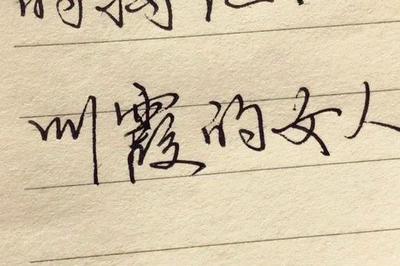 的
叫霞的女人